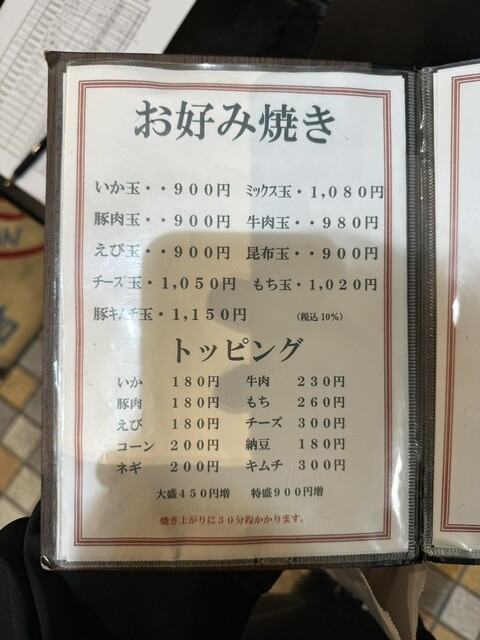 お好み焼き
いか玉・・900円 ミックス玉・1,080円
豚肉玉・・900円 牛肉玉・・980円
えび玉・・900円 昆布玉・・900円
チーズ玉・1,050円 もち玉・1,020円
豚キムチ玉・1,150円 (税込10%)
トッピング
いか 180円 牛肉 230円
豚肉 180円 もち 260円
えび 180円 チーズ 300円
コーン 200円 納豆 180円
ネギ 200円 キムチ 300円
大盛450円増 特盛900円増
焼き上がりに30分程かかります。